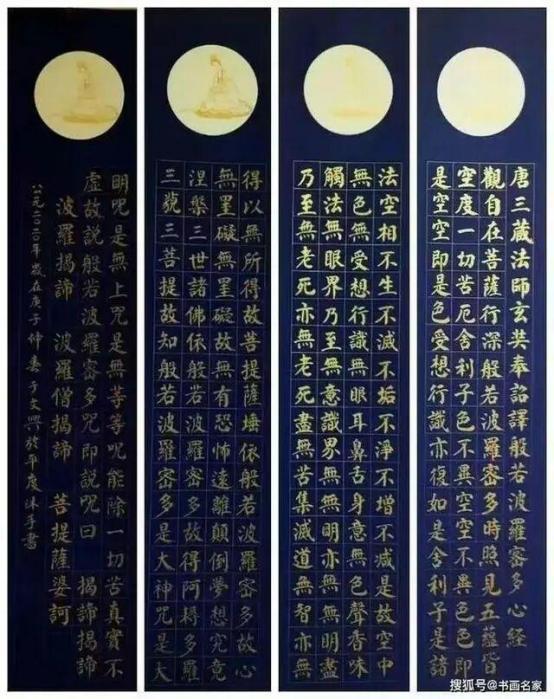 唐三藏法師玄奘奉詔譯般若波羅密多心経
觀自在菩薩行深般若波羅密多時照見五蘊皆
空度一切苦厄舍利子色不異空空不異色色即
是空空即是色受想行識亦復如是舍利子是諸
法空相不生不滅不垢不淨不增不减是故空中
無色無受想行識無眼耳鼻舌身意無色聲香味
觸法無眼界乃至無意識界無無明亦無無明盡
乃至無老死亦無老死盡無苦集滅道無智亦無
得以無所得故菩提薩埵依般若波羅密多故心
無罣礙無罣礙故無有恐怖遠離顛倒夢想究竟
涅槃三世諸佛依般若波羅密多故得阿耨多羅
三藐三菩提故知般若波羅密多是大神咒是大
明咒是無上咒是無等等咒能除一切苦真實不
虛故説般若波羅密多咒即説咒曰 揭諦揭諦
波羅揭諦 波羅僧揭諦 菩提薩婆訶
公元二〇二〇年歲在庚子仲春于文興於平度沐手書
搜狐号@书画名家